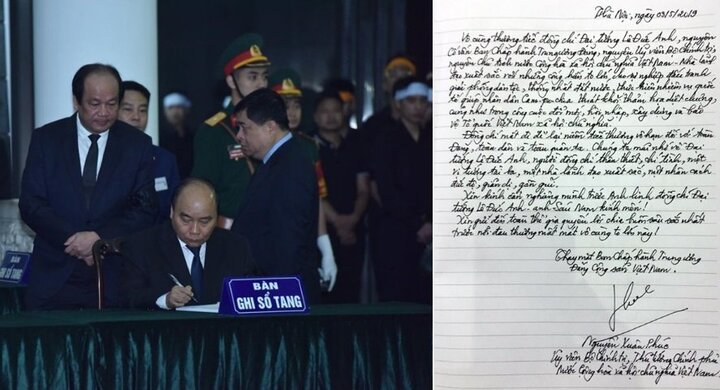 BÀN
GHI SỔ TANG
Hà Nội, ngày 03/5/2019
Vô cùng thương tiếc đồng chí Đại tướng Lê Đức Anh, nguyên
Cố vấn Ban Chấp hành Trung ương Đảng, nguyên Ủy viên Bộ Chính trị,
nguyên Chủ tịch nước Cộng hòa xã hội chủ nghĩa Việt Nam - Nhà lãnh
đạo xuất sắc với những cống hiến to lớn cho sự nghiệp đấu tranh
giải phóng dân tộc, thống nhất đất nước, thực hiện nhiệm vụ quốc
tế giúp nhân dân Cam pu chia thoát khỏi thảm họa diệt chủng
cũng như trong công cuộc đổi mới, hội nhập, xây dựng và bảo
vệ Tổ quốc Việt Nam xã hội chủ nghĩa.
Đồng chí mất đi để lại niềm tiếc thương vô hạn đối với toàn
Đảng, toàn dân và toàn quân ta. Chúng ta mãi nhớ về Đại
tướng Lê Đức Anh, người đồng chí thân thiết, chí tình, một
vị tướng tài ba, một nhà lãnh đạo xuất sắc, một nhân cách
đức độ, giản dị, gần gũi.
Xin kính cẩn nghiêng mình trước Anh linh đồng chí Đại
tướng Lê Đức Anh - anh Sáu Nam kính mến!
Xin gửi đến toàn thể gia quyến lời chia buồn sâu sắc nhất
trước nỗi đau thương mất mát vô cùng to lớn này!
Thay mặt Ban Chấp hành Trung ương
Đảng Cộng sản Việt Nam.
Nguyễn Xuân Phúc
Ủy viên Bộ Chính trị, Thủ tướng Chính phủ
Nước Cộng hòa xã hội chủ nghĩa Việt Nam